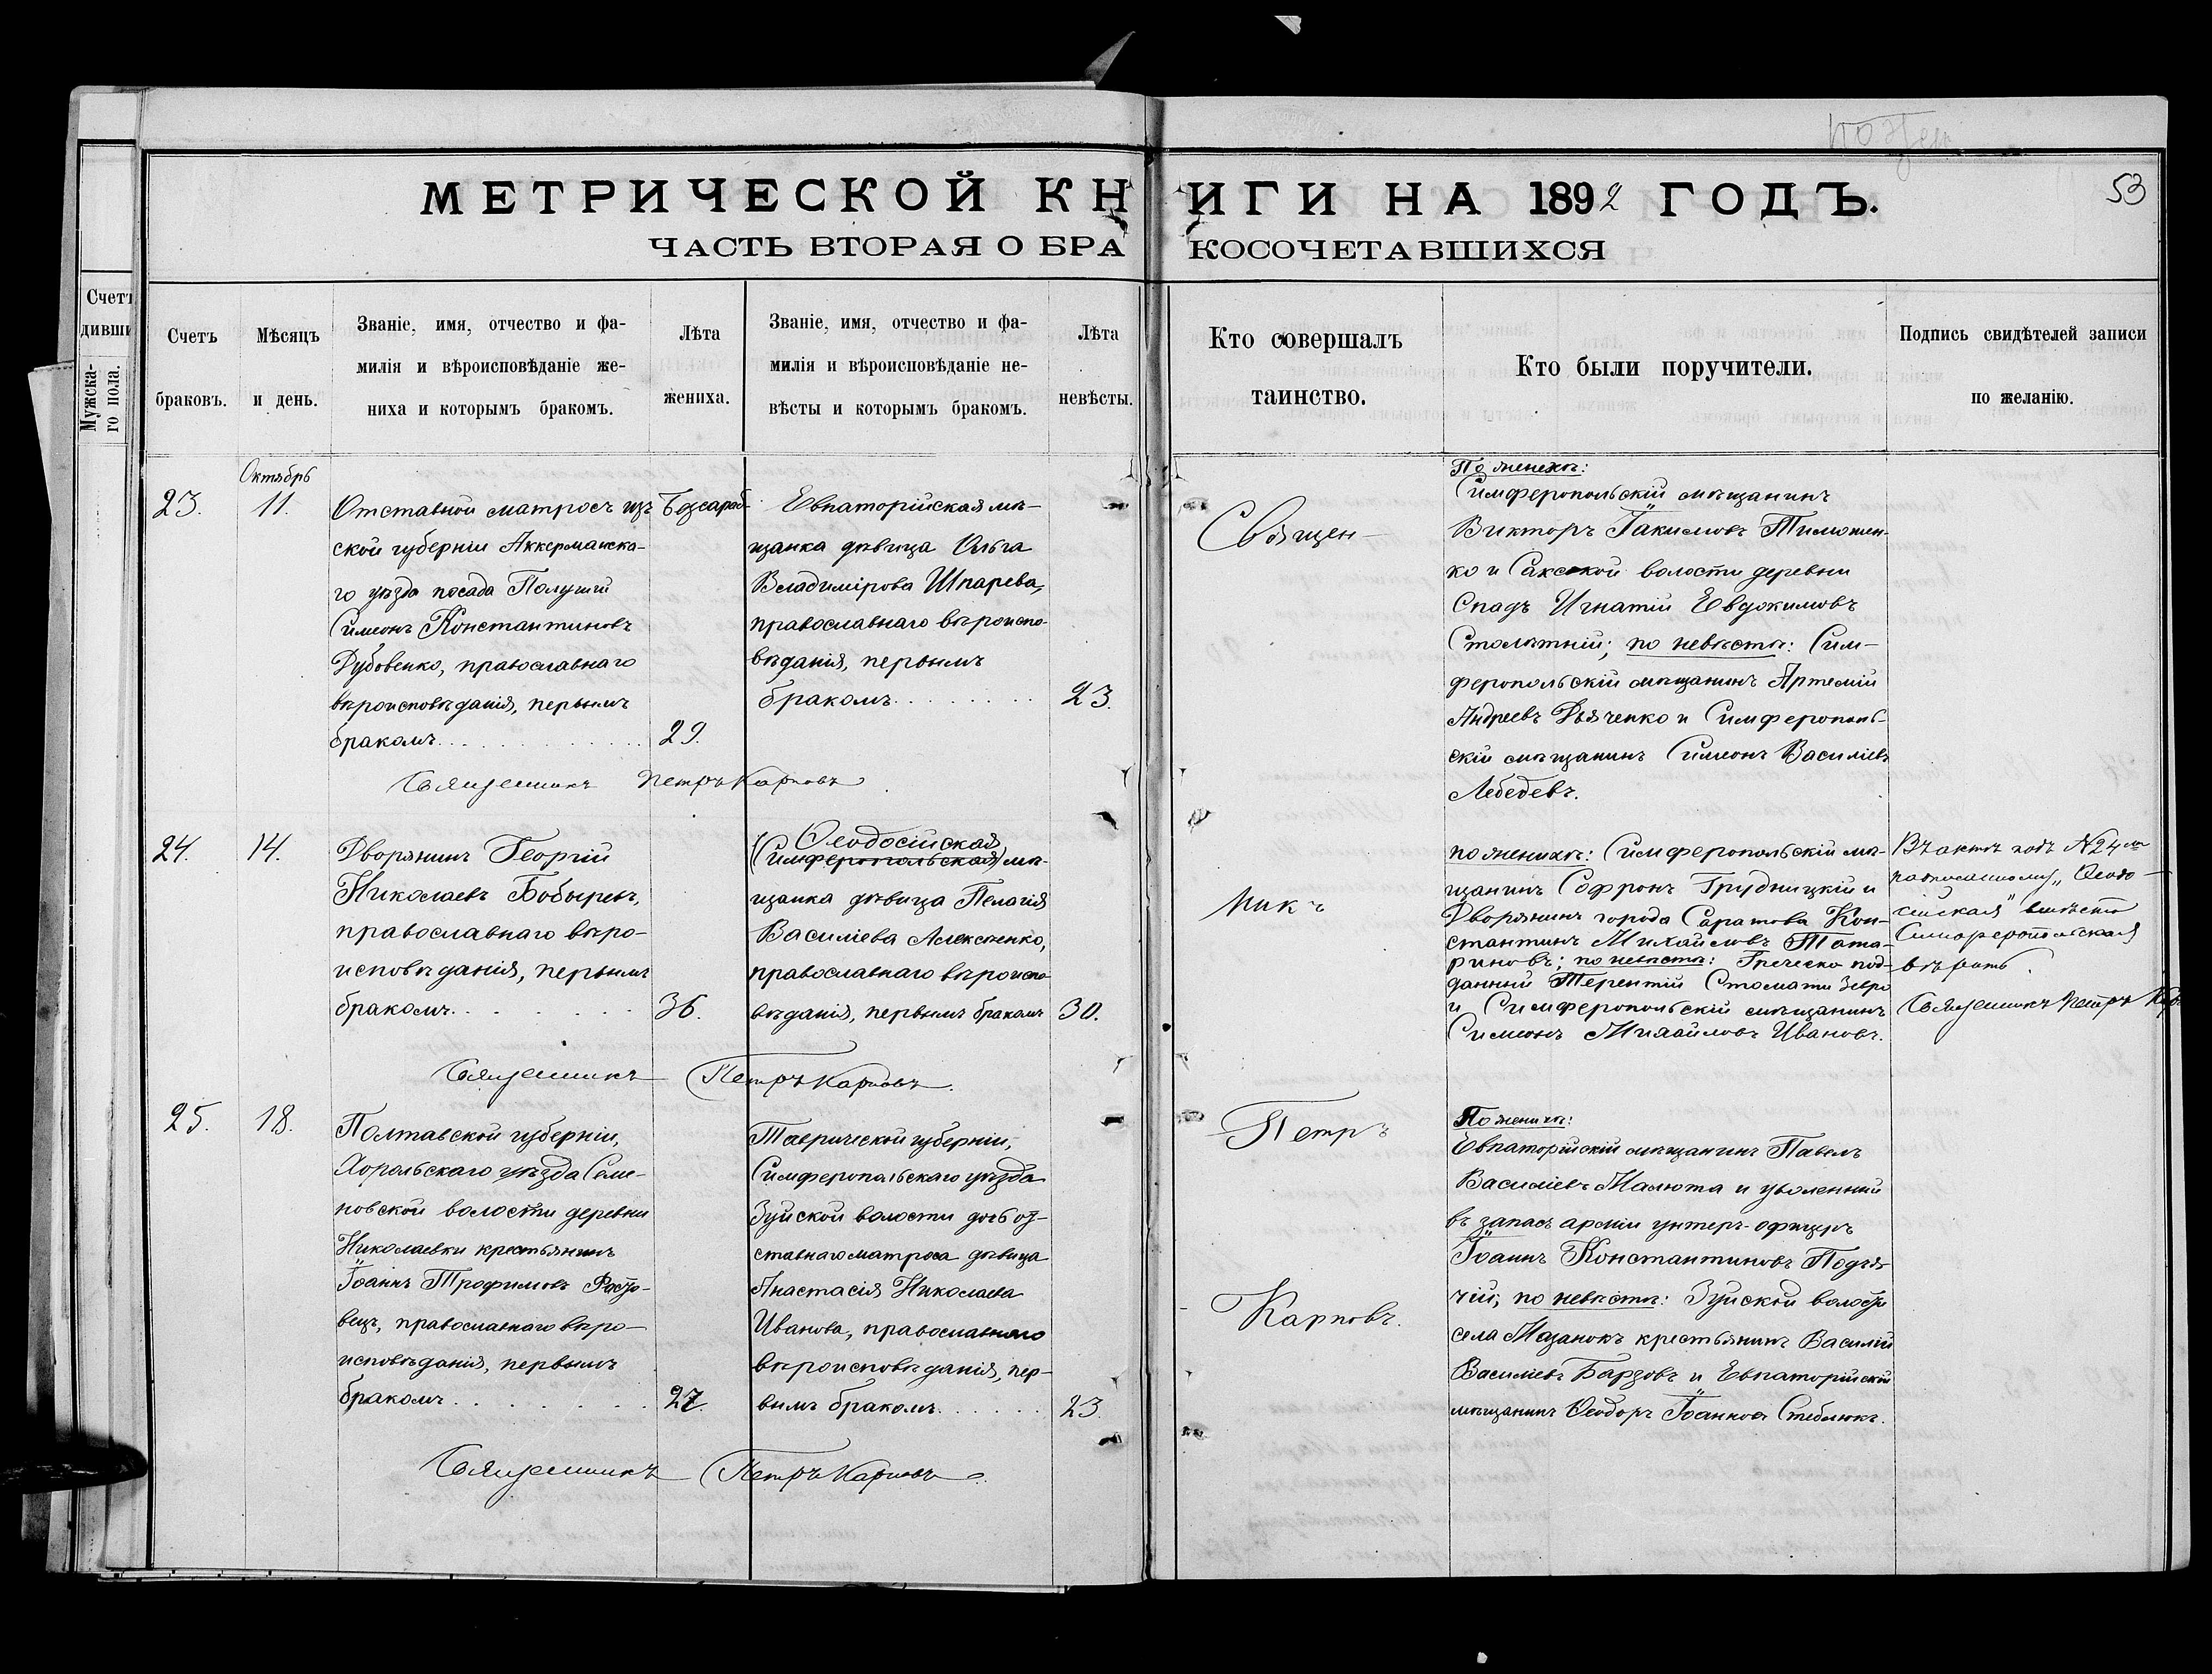 МЕТРИЧЕСКОЙ КНИГИ НА 1892 ГОДЪ.
53
ЧАСТЬ ВТОРАЯ О БРАКОСОЧЕТАВШИХСЯ
Счетъ браковъ.
Мѣсяцъ и день.
Званіе, имя, отчество и фа-
милія и вѣроисповѣданіе же-
ниха и которымъ бракомъ.
Лѣта
жениха.
Званіе, имя, отчество и фа-
милія и вѣроисповѣданіе не-
вѣсты и которымъ бракомъ.
Лѣта
невѣсты.
Кто совершалъ
таинство.
Кто были поручители.
Подпись свидѣтелей записи
по желанію.
Мужска-
го пола.
23.
Октябрь
11.
Отставной матросъ изъ Бессараб-
ской губерніи Аккерманска-
го уѣзда посада
Симеонъ Константиновъ
Дубовенко, православнаго
вѣроисповѣданія, первымъ
бракомъ
29.
Евпаторійская мѣ-
щанка дѣвица Ольга
Владимірова Шпарева,
православнаго вѣроиспо-
вѣданія, первымъ
бракомъ
23.
Священ-
По женихѣ:
Симферопольскій мѣщанинъ
Викторъ Іакимовъ Тимошен-
ко и Сакской волости деревни
Спадъ Игнатій Евдокимовъ
Столѣтній; по невѣстѣ: Сим-
феропольскій мѣщанинъ Артемій
Андреевъ Дьяченко и Симферополь-
скій мѣщанинъ Симеонъ Василіевъ
Лебедевъ.
Священникъ Петръ Карповъ
24.
14.
Дворянинъ Георгій
Николаевъ Бобыревъ,
православнаго вѣро-
исповѣданія, первымъ
бракомъ
36.
Ѳеодосійская
(Симферопольская) мѣ-
щанка дѣвица Пелагія
Василіева Алексѣенко,
православнаго вѣроиспо-
вѣданія, первымъ бракомъ
30.
никъ
по женихѣ: Симферопольскій мѣ-
щанинъ Софронъ Грудницкій и
Дворянинъ города Саратова Кон-
стантинъ Михайловъ Тата-
риновъ; по невѣстѣ: Греческо под-
данный Терентій Стомати Зевро
и Симферопольскій мѣщанинъ
Симеонъ Михайловъ Ивановъ.
Въ актѣ подъ №24мъ
написанному „Ѳеодо-
сійская" вмѣсто
Симферопольская
вѣрить.
Священникъ Петръ Кар
Священникъ Петръ Карповъ.
25.
18.
Полтавской губерніи,
Хорольскаго уѣзда Семе-
новской волости деревни
Николаевки крестьянинъ
Іоаннъ Трофимовъ Расто-
вецъ, православнаго вѣро-
исповѣданія, первымъ
бракомъ
27.
Таврической губерніи,
Симферопольскаго уѣзда
Зуйской волости дочь от-
ставнаго матроса дѣвица
Анастасія Николаева
Иванова, православнаго
вѣроисповѣданія, пер-
вымъ бракомъ
23.
Петръ
Карповъ.
По женихѣ:
Евпаторійскій мѣщанинъ Павелъ
Василіевъ Малюта и уволенный
въ запасъ арміи унтеръ-офицеръ
Іоаннъ Константиновъ Подъя-
чій; по невѣстѣ: Зуйской волости
села Мазанокъ крестьянинъ Василій
Василіевъ Барзовъ и Евпаторійской
мѣщанинъ Ѳеодоръ Іоанновъ Стеблюкъ.
Священникъ Петръ Карповъ